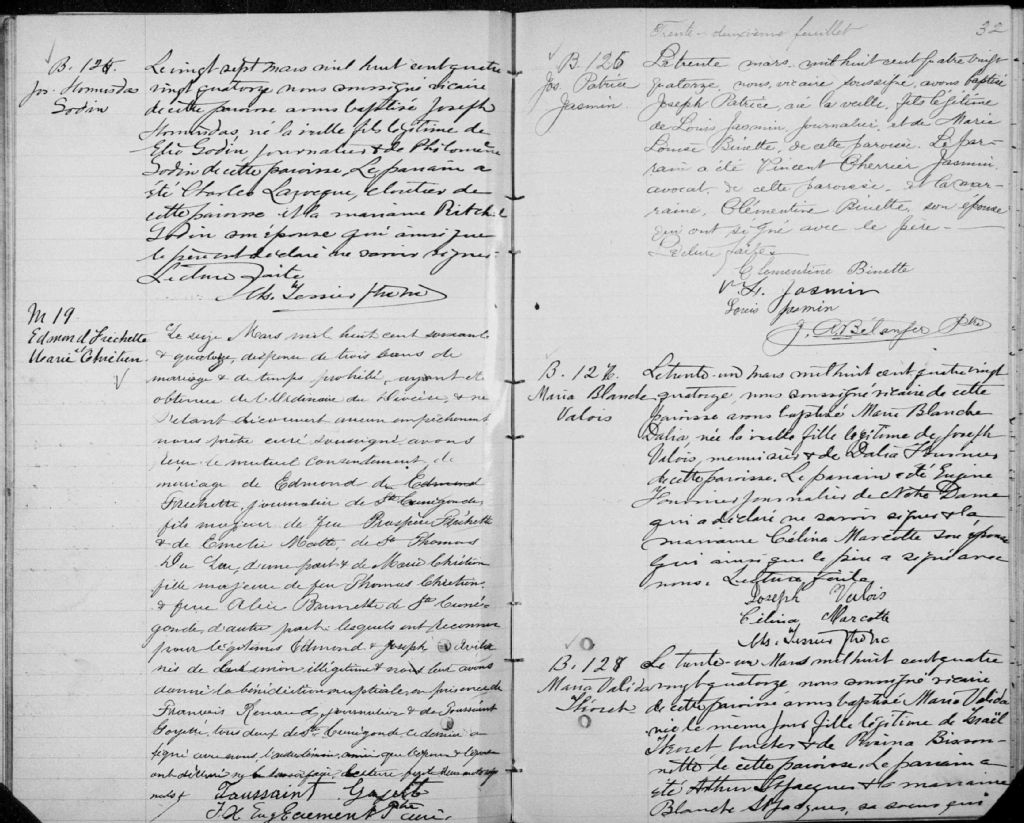 B. 125.
Jos. Homisdas
Godin
Le vingt sept mars mil huit cent quatre
vingt quatorze nous soussigné vicaire
de cette paroisse avons baptisé Joseph
Homisdas, né la veille fils légitime de
Godin journalier & de Philomène
Godin de cette paroisse. Le parrain a
été Charles Larocque, cloutier de
cette paroisse et la marraine
Godin son épouse qui ainsi que
le père ont déclaré ne savoir signer.
Lecture faite
M 19
Edmond Frechette
et
Marie Chrétien.
Le seize Mars mil huit cent soixante
& quatorze, dispense de trois bans de
mariage & de temps prohibé, ayant été
obtenue de l'Ordinaire du Diocèse, & ne
s'étant découvert aucun empêchement
nous prêtre curé soussigné avons
reçu le mutuel consentement de
mariage de Edmond de Edmond
Frechette journalier de Ste Cunégonde,
fils majeur de feu Prospère Fréchette
& de Emelie Matte, de St Thomas
d'une part & de Marie Chrétien
fille majeure de feu Thomas Chrétien
& feue Alice de Ste Cuné-
gonde, d'autre part lesquels ont reconnu
pour légitimes Edmond & Joseph
nés de leur union illégitime & nous leur avons
donné la bénédiction nuptiale, en présence de
François Renaud, journalier & de Toussaint
Goyette, tous deux de Ste Cunégonde ce dernier a
signé avec nous, ainsi que l'époux & l'épouse
ont déclaré ne le savoir faire, lecture faite
Toussaint Goyette
Ptre Curé.
Trente-deuxième feuillet
32
B. 126
Jos Patrice
Jasmin.
Le trente mars mil huit cent quatre vingt
quatorze, nous, vicaire soussigné, avons baptisé
Joseph Patrice, né la veille, fils légitime
de Louis Jasmin, journalier, et de Marie
Louise Binette, de cette paroisse. Le par-
rain a été Vincent Cherrier Jasmin
avocat, de cette paroisse, et la mar-
raine, Clémentine Binette, son épouse
qui ont signé avec le père.—
Lecture faite.
Clementine Binette
Jasmin
Louis Jasmin
J. A. Bélanger Ptre
B. 127.
Maria Blanche
Valois
Le trente-un mars mil huit cent quatre vingt
quatorze, nous soussigné vicaire de cette
paroisse avons baptisé Marie Blanche
Dalia, née la veille fille légitime de Joseph
Valois, menuisier & de Dalia Fournier
de cette paroisse. Le parrain a été Eugène
Fournier journalier de Notre Dame
qui a déclaré ne savoir signer & la
marraine Célina Marcotte son épouse
qui ainsi que le père a signé avec
nous. Lecture faite
Joseph Valois
Célina Marcotte
B. 128
Maria Valida
Thoret
Le trente-un Mars mil huit cent quatre
vingt quatorze, nous soussigné vicaire
de cette paroisse avons baptisé Maria Valida
née le même jour fille légitime de Israël
Thoret boucher & de Rosina Bisson-
nette de cette paroisse. Le parrain a
été Arthur St Jacques & la marraine
Blanche St Jacques, sa soeur qui